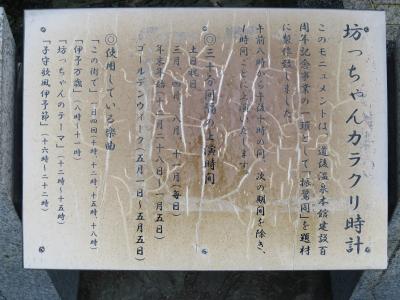 坊っちゃんカラクリ時計
このモニュメントは、道後温泉本館建設百
周年記念事業の一環として「振鷺閣」を題材
に製作致しました。
午前八時から午後十時の間、次の期間を除き、
一時間ごとに上演いたします。
◎三十分間隔の上演時間
土日祝日
三月・四月・八月・十一月(毎日)
年末年始(十二月二十八日〜一月五日)
ゴールデンウィーク(五月一日〜五月五日)
◎使用している楽曲
「この街で」(一日四回(十時、十二時、十五時、十八時)
「伊予万歳」(八時〜十一時)
「坊っちゃんのテーマ」(十二時〜十五時)
「子守歌風伊予節」(十六時〜二十二時)